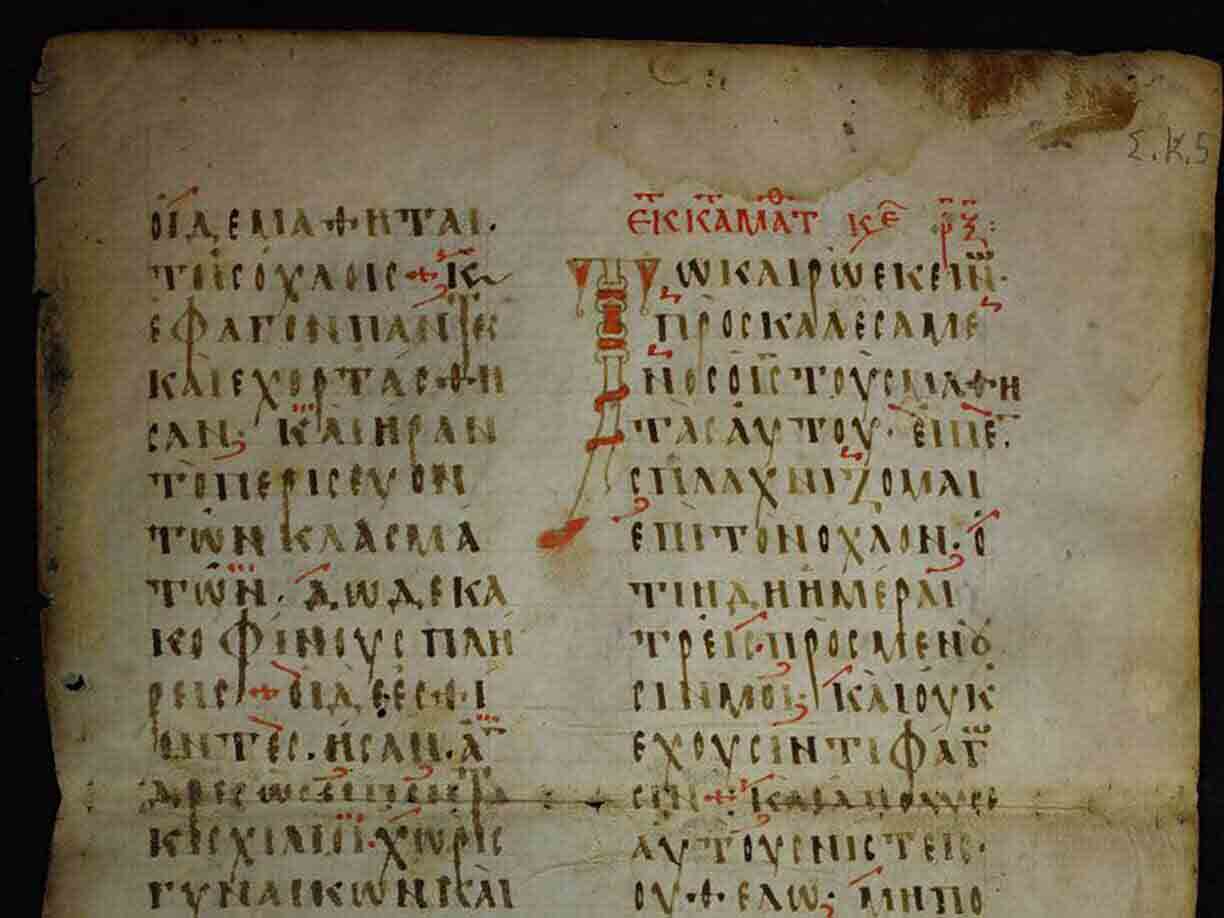 ΟΙΔΕΜΑΘΗΤΑΙ·
ΤΟΙΣΟΧΛΟΙΣ + Κ
ΕΦΑΓΟΝΠΑΝΤΕΣ
ΚΑΙΕΧΟΡΤΑΣΘΗ
ΣΑΝ· ΚΑΙΗΡΑΝ
ΤΟΠΕΡΙΣΕΥΟΝ
ΤΩΝΚΛΑΣΜΑ
ΤΩΝ· ΔΩΔΕΚΑ
ΚΟΦΙΝΟΥΣΠΛΗ
ΡΕΙΣ + ΟΙΔΕΕΣΘΙ
ΟΝΤΕΣ· ΗΣΑΝ· Α
ΚΙΣΧΙΛΙΟΙ· ΧΩΡΙΣ
ΓΥΝΑΙΚΩΝΚΑΙ
Σ.Κ.5
ΕΚΚΑΜΑΤ ΚΕ
ΤΩΚΑΙΡΩΕΚΕΙΝ·
ΠΡΟΣΚΑΛΕΣΑΜΕ
ΝΟΣΟΙΣΤΟΥΣΜΑΘΗ
ΤΑΣΑΥΤΟΥ· ΕΙΠΕ·
ΣΠΛΑΧΝΙΖΟΜΑΙ
ΕΠΙΤΟΝΟΧΛΟΝ· Ο
ΤΙΗΔΗΗΜΕΡΑΙ
ΤΡΕΙΣ· ΠΡΟΣΜΕΝȣ
ΣΙΝΜΟΙ· ΚΑΙΟΥΚ
ΕΧΟΥΣΙΝΤΙΦΑΓ
ΣΙΝ + ΚΑΙΑΠΟΛΥΣΕ
ΑΥΤΟΥΣΝΙΣΤΕΙΣ·
ΟΥΘΕΛΩ· ΜΗΠΟ